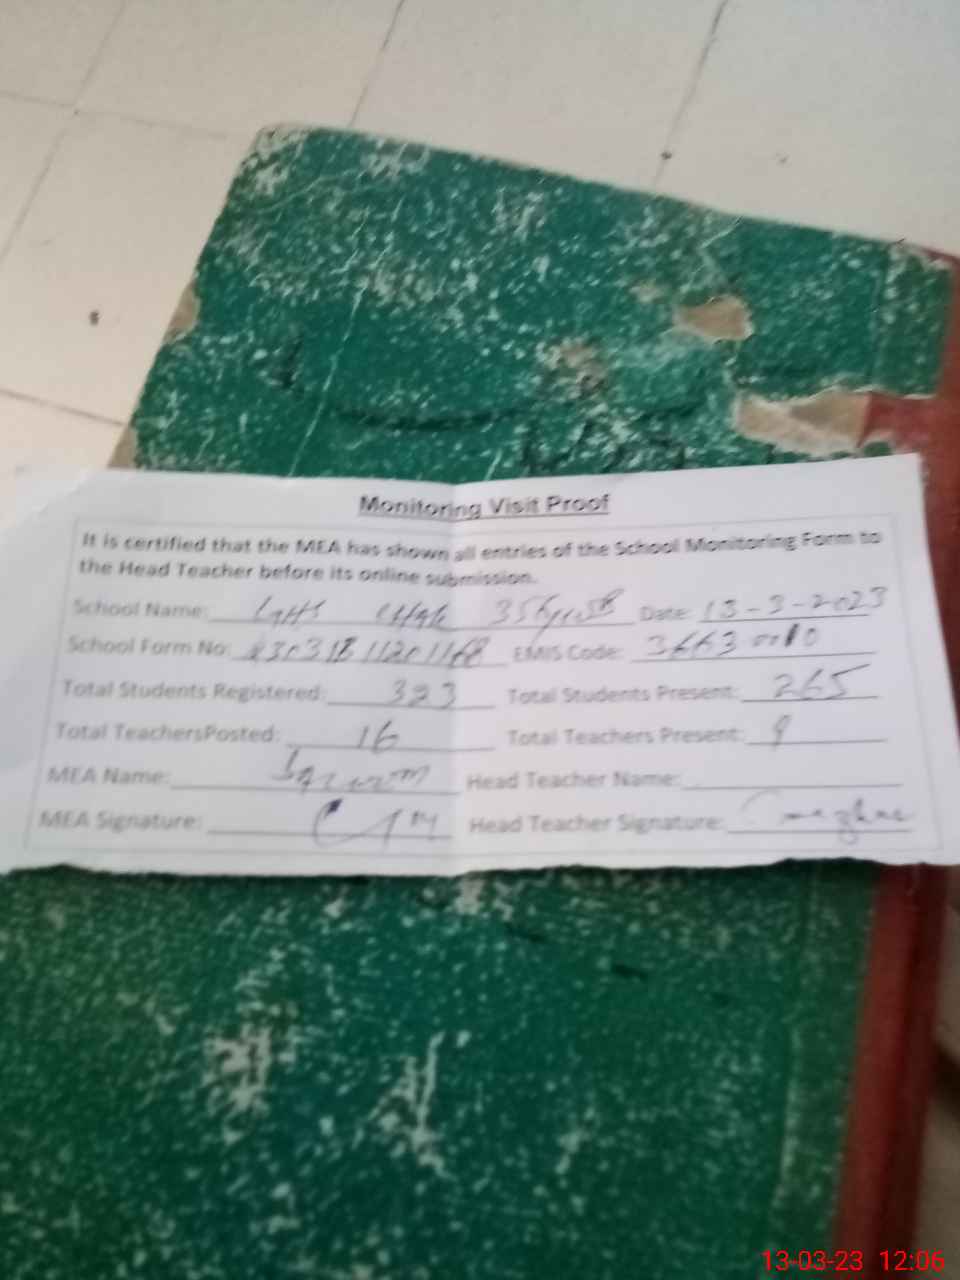 Monitoring Visit Proof
It is certified that the MEA has shown all entries of the School Monitoring Form to
the Head Teacher before its online submission.
School Name: Date: 13-3-2023
School Form No: EMIS Code: 36630010
Total Students Registered: 323 Total Students Present: 265
Total TeachersPosted: 16 Total Teachers Present: 9
MEA Name: Head Teacher Name:
MEA Signature: Head Teacher Signature:
13-03-23 12:06